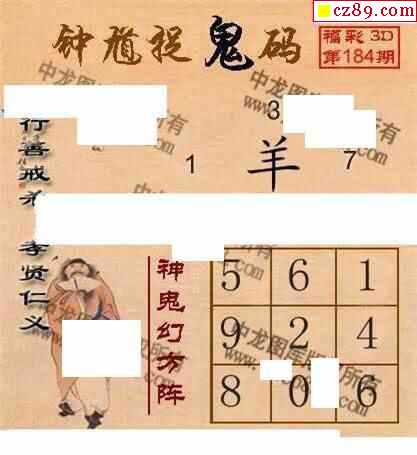 cz89.com
钟馗捉鬼码
福彩 3D
第184期
3
1
羊
7
行善戒杀
孝贤仁义
神鬼幻方阵
5 6 1
9 2 4
8 0 6
中龙图库版权所有